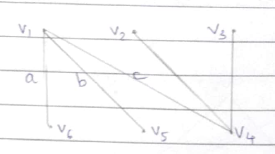 V₁ V₂ V₃
a b c
V₆ V₅ V₄